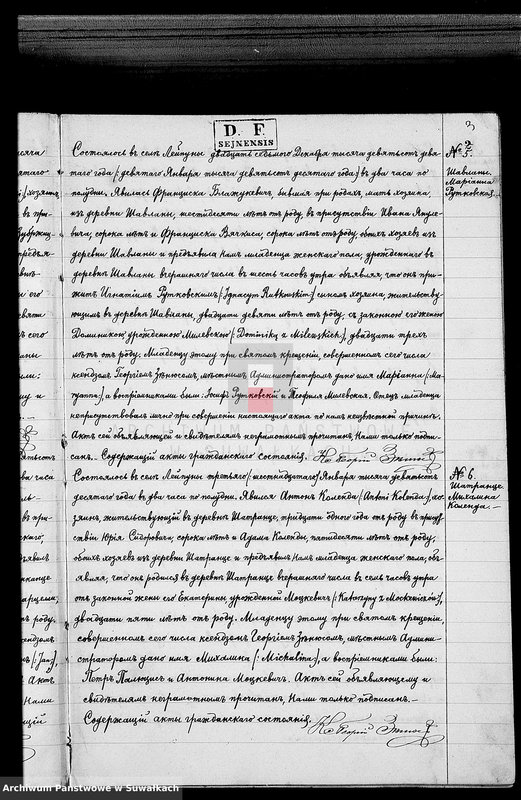 D. F.
SEJNENSIS
3
№ 5.
Шавляны.
Маріанна
Рутковская.
Состоялось въ селѣ Лейпуны двадцать седьмого Декабря тысяча девятьсотъ девя-
таго года /: девятаго Января тысяча девятьсотъ десятаго года :/ въ два часа по
полудни. Явилась Франциска Блажукевичъ, бывшая при родахъ, мать хозяина,
изъ деревни Шавляны, шестидесяти лѣтъ отъ роду, въ присутствіи Ивана Януле-
вича, сорока лѣтъ и Франциска Вячкиса, сорока лѣтъ отъ роду, обоихъ хозяевъ изъ
деревни Шавляны и предъявила Намъ младенца женскаго пола, урожденнаго въ
деревнѣ Шавляны вчерашняго числа въ шесть часовъ утра объявляя, что онъ при-
житъ Игнатіемъ Рутковскимъ /: Ignacym Rutkowskim :/ сыномъ хозяина, жительству-
ющимъ въ деревнѣ Шавляны, двадцати девяти лѣтъ отъ роду, съ законною его женою
Доминикою урожденною Милевскою /: Dominiką z Milewskich :/, двадцати трехъ
лѣтъ отъ роду. Младенцу этому при святомъ крещеніи, совершенномъ сего числа
ксендзомъ Георгіемъ Зѣнюсомъ, мѣстнымъ Администраторомъ дано имя Маріанна /: Ma-
ryanna :/, а воспріемниками были: Іосифъ Рутковскій и Теофиля Милевская. Отецъ младенца
неприсутствовалъ лично при совершеніи настоящаго акта по намъ неизвѣстной причинѣ.
Актъ сей объявляющей и свидѣтелямъ неграмотнымъ прочитанъ, Нами только подпи-
санъ. Содержащій акты гражданскаго состоянія. Кс. Георгій Зѣнюсъ
№ 6.
Шатранце.
Михалина
Коленда.
Состоялось въ селѣ Лейпуны третьяго /: шестнадцатаго :/ Января тысяча девятьсотъ
десятаго года въ два часа по полудни. Явился Антонъ Коленда /: Antoni Kolenda :/, хо-
зяинъ жительствующій въ деревнѣ Шатранце, тридцати одного года отъ роду въ присут-
ствіи Юрія Сидоровича, сорока лѣтъ и Адама Коленды, пятидесяти лѣтъ отъ роду,
обоихъ хозяевъ изъ деревни Шатранце и предъявилъ Намъ младенца женскаго пола, объ-
являя, что онъ родился въ деревнѣ Шатранце вчерашняго числа въ семь часовъ утра
отъ законной жены его Екатерины урожденной Моцкевичъ
двадцати пяти лѣтъ отъ роду. Младенцу этому при святомъ крещеніи,
совершенномъ сего числа ксендзомъ Георгіемъ Зѣнюсомъ, мѣстнымъ Админи-
страторомъ дано имя Михалина /: Michalina :/, а воспріемниками были:
Петръ Палюцисъ и Антонина Моцкевичъ. Актъ сей объявляющему и
свидѣтелямъ неграмотнымъ прочитанъ, Нами только подписанъ.
Содержащій акты гражданскаго состоянія. Кс. Георгій Зѣнюсъ
ARCHIWUM PAŃSTWOWE
Archiwum Państwowe w Suwałkach